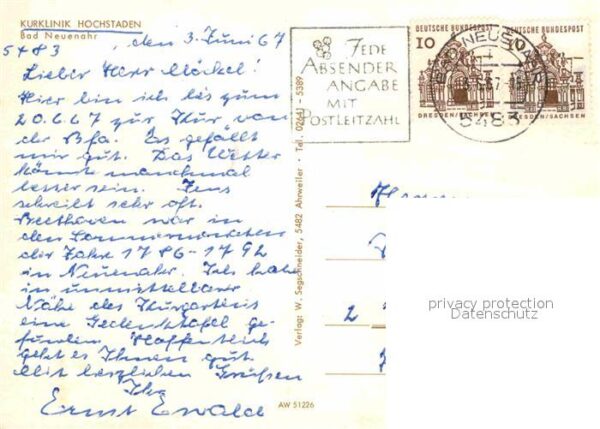 KURKLINIK HOCHSTADEN
Bad Neuenahr
5483 , den 3. Juni 67
Lieber Herr Möckel!
Hier bin ich bis zum
20.6.67 zur Kur von
der Bfa. Es gefällt
mir gut. Das Wetter
könnte manchmal
besser sein. Jens
schreibt sehr oft.
Beethoven war in
den Sommermonaten
der Jahre 1786-1792
in Neuenahr. Ich habe
in unmittelbarer
Nähe des Kurgartens
eine Gedenktafel ge-
funden. Hoffentlich
geht es Ihnen gut.
Mit herzlichen Grüßen
Ihr
Ernst Ewald
JEDE
ABSENDER
ANGABE
MIT
POSTLEITZAHL
DEUTSCHE BUNDESPOST
10
DRESDEN/SACHSEN
DEUTSCHE BUNDESPOST
10
DRESDEN/SACHSEN
BAD NEUENAHR
5483
Verlag: W. Segschneider, 5482 Ahrweiler · Tel. 02641 - 5389
2
privacy protection
Datenschutz
AW 51226